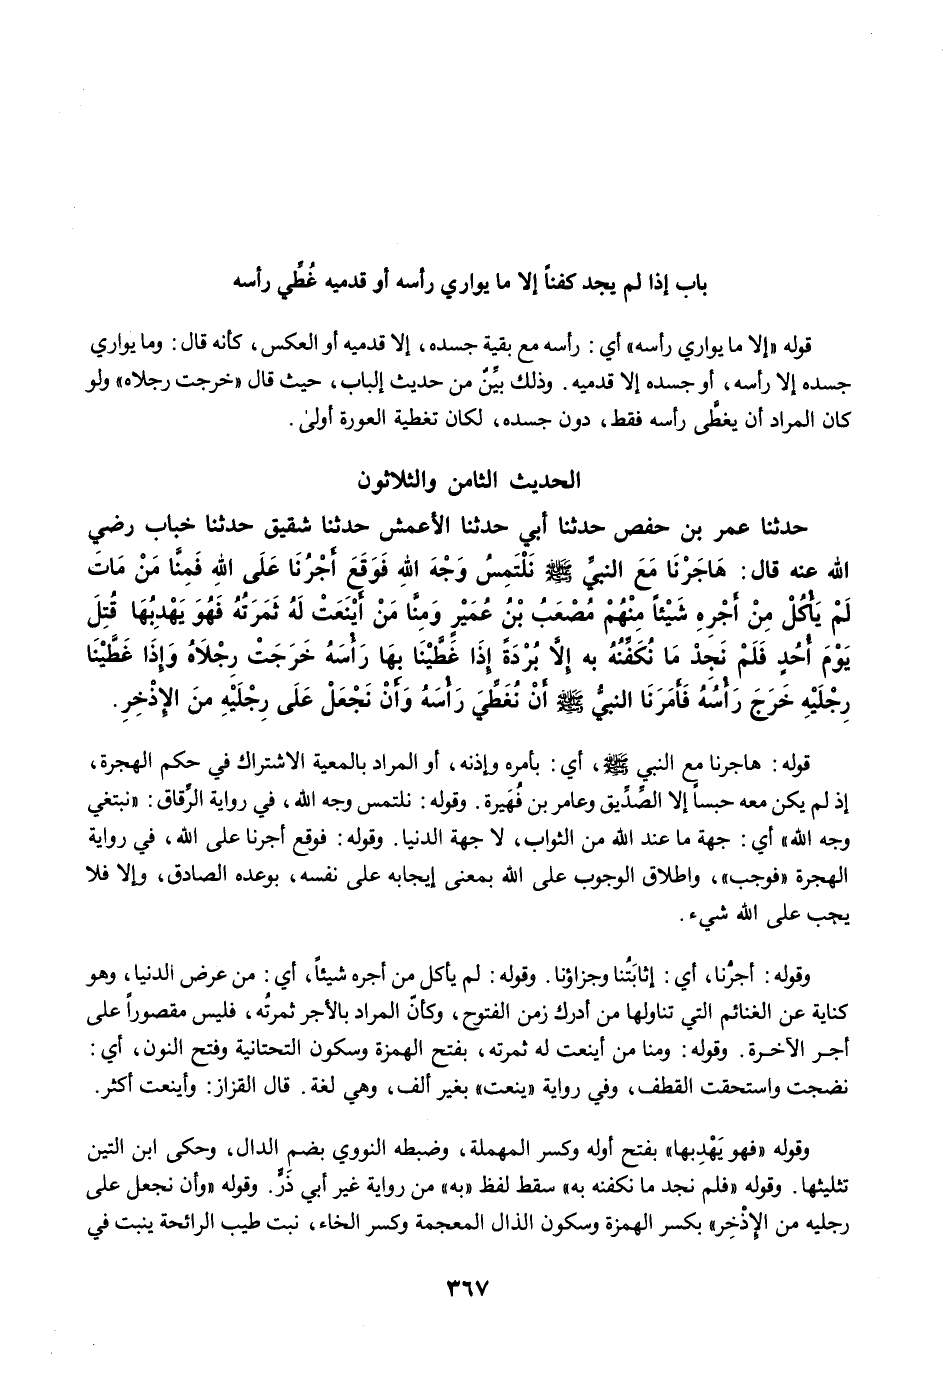 باب إذا لم يجد كفناً إلا ما يواري رأسه أو قدميه غُطِّي رأسه
قوله «إلا ما يواري رأسه» أي: رأسه مع بقية جسده، إلا قدميه أو العكس، كأنه قال: وما يواري
جسده إلا رأسه، أو جسده إلا قدميه. وذلك بيِّنٌ من حديث إلباب، حيث قال «خرجت رجلاه» ولو
كان المراد أن يغطَّى رأسه فقط، دون جسده، لكان تغطية العورة أولىٰ.
الحديث الثامن والثلاثون
حدثنا عمر بن حفص حدثنا أبي حدثنا الأعمش حدثنا شقيق حدثنا خباب رضي
الله عنه قال: هَاجَرْنَا مَعَ النبيِّ ﷺ نَلْتَمِسُ وَجْهَ اللهِ فَوَقَعَ أَجْرُنَا عَلَى اللهِ فَمِنَّا مَنْ مَاتَ
لَمْ يَأْكُلْ مِنْ أَجْرِهِ شَيْئاً مِنْهُمْ مُصْعَبُ بْنُ عُمَيْرٍ وَمِنَّا مَنْ أَيْنَعَتْ لَهُ ثَمَرَتُهُ فَهُوَ يَهْدِبُهَا قُتِلَ
يَوْمَ أُحُدٍ فَلَمْ نَجِدْ مَا نُكَفِّنُهُ به إِلاَّ بُرْدَةً إذَا غَطَّيْنَا بِهَا رَأْسَهُ خَرَجَتْ رِجْلاَهُ وَإِذَا غَطَّيْنَا
رِجْلَيْهِ خَرَجَ رَأْسُهُ فَأَمَرَنَا النبيُّ ﷺ أَنْ نُغَطِّيَ رَأْسَهُ وَأَنْ نَجْعَلْ عَلَى رِجْلَيْهِ منَ الإِذْخِرِ.
قوله: هاجرنا مع النبي ﷺ، أي: بأمره وإذنه، أو المراد بالمعية الاشتراك في حكم الهجرة،
إذ لم يكن معه حبساً إلا الصِّدِّيق وعامر بن فُهَيرة. وقوله: نلتمس وجه الله، في رواية الرِّقاق: «نبتغي
وجه الله» أي: جهة ما عند الله من الثواب، لا جهة الدنيا. وقوله: فوقع أجرنا على الله، في رواية
الهجرة «فوجب»، واطلاق الوجوب على الله بمعنى إيجابه على نفسه، بوعده الصادق، وإلا فلا
يجب على الله شيء.
وقوله: أجرُنا، أي: إثابَتُنا وجزاؤنا. وقوله: لم يأكل من أجره شيئاً، أي: من عرض الدنيا، وهو
كناية عن الغنائم التي تناولها من أدرك زمن الفتوح، وكأنّ المراد بالأجر ثمرتُه، فليس مقصوراً على
أجر الآخرة. وقوله: ومنا من أينعت له ثمرته، بفتح الهمزة وسكون التحتانية وفتح النون، أي:
نضجت واستحقت القطف، وفي رواية «ينعت» بغير ألف، وهي لغة. قال القزاز: وأينعت أكثر.
وقوله «فهو يَهْدِبها» بفتح أوله وكسر المهملة، وضبطه النووي بضم الدال، وحكى ابن التين
تثليثها. وقوله «فلم نجد ما نكفنه به» سقط لفظ «به» من رواية غير أبي ذَرٍّ. وقوله «وأن نجعل على
رجليه من الإِذْخِر» بكسر الهمزة وسكون الذال المعجمة وكسر الخاء، نبت طيب الرائحة ينبت في
٣٦٧